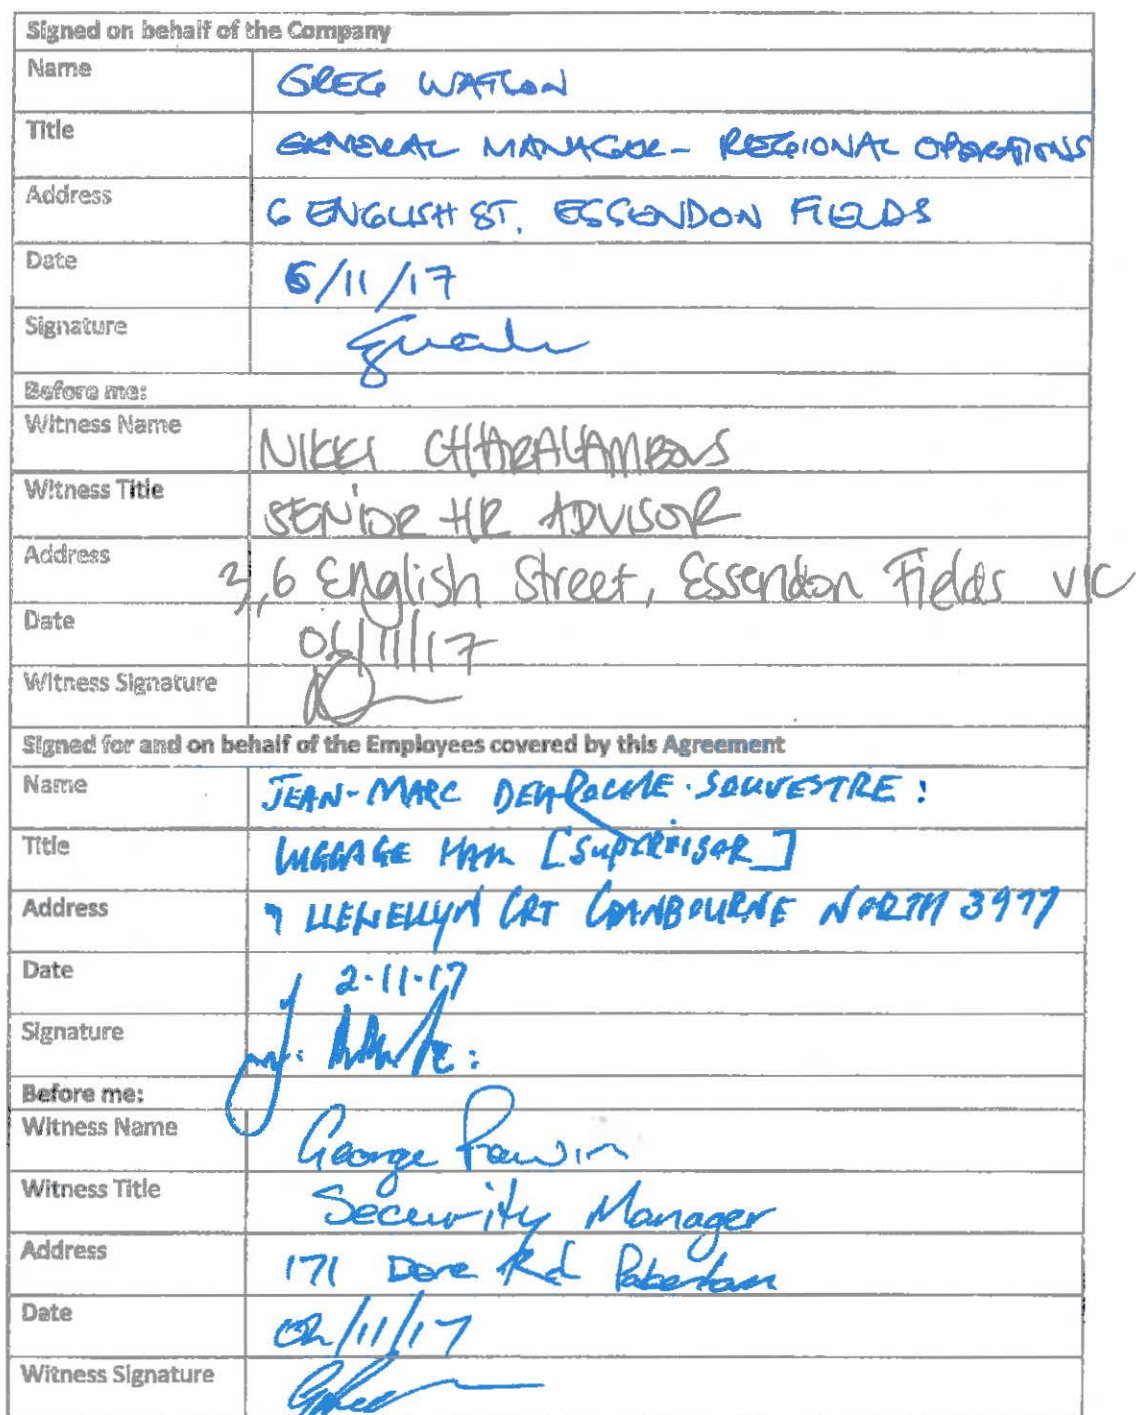 Signed on behalf of the Company
Name GREG WATSON
Title GENERAL MANAGER - REGIONAL OPERATIONS
Address 6 ENGLISH ST, ESSENDON FIELDS
Date 6/11/17
Signature
Before me:
Witness Name NIKKI CHARALAMBOUS
Witness Title SENIOR HR ADVISOR
Address 3,6 English Street, Essendon Fields VIC
Date 06/11/17
Witness Signature
Signed for and on behalf of the Employees covered by this Agreement
Name JEAN-MARC DELAROCHE-SOUVESTRE :
Title LUGGAGE [SUPERVISOR]
Address 7 LLEWELLYN CRT CRANBOURNE NORTH 3977
Date 2-11-17
Signature
Before me:
Witness Name George
Witness Title Security Manager
Address 171 Dore Rd Pakenham
Date 02/11/17
Witness Signature